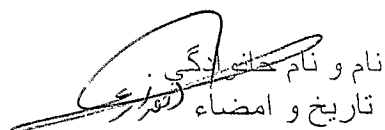 نام و نام خانوادگی
تاریخ و امضاء